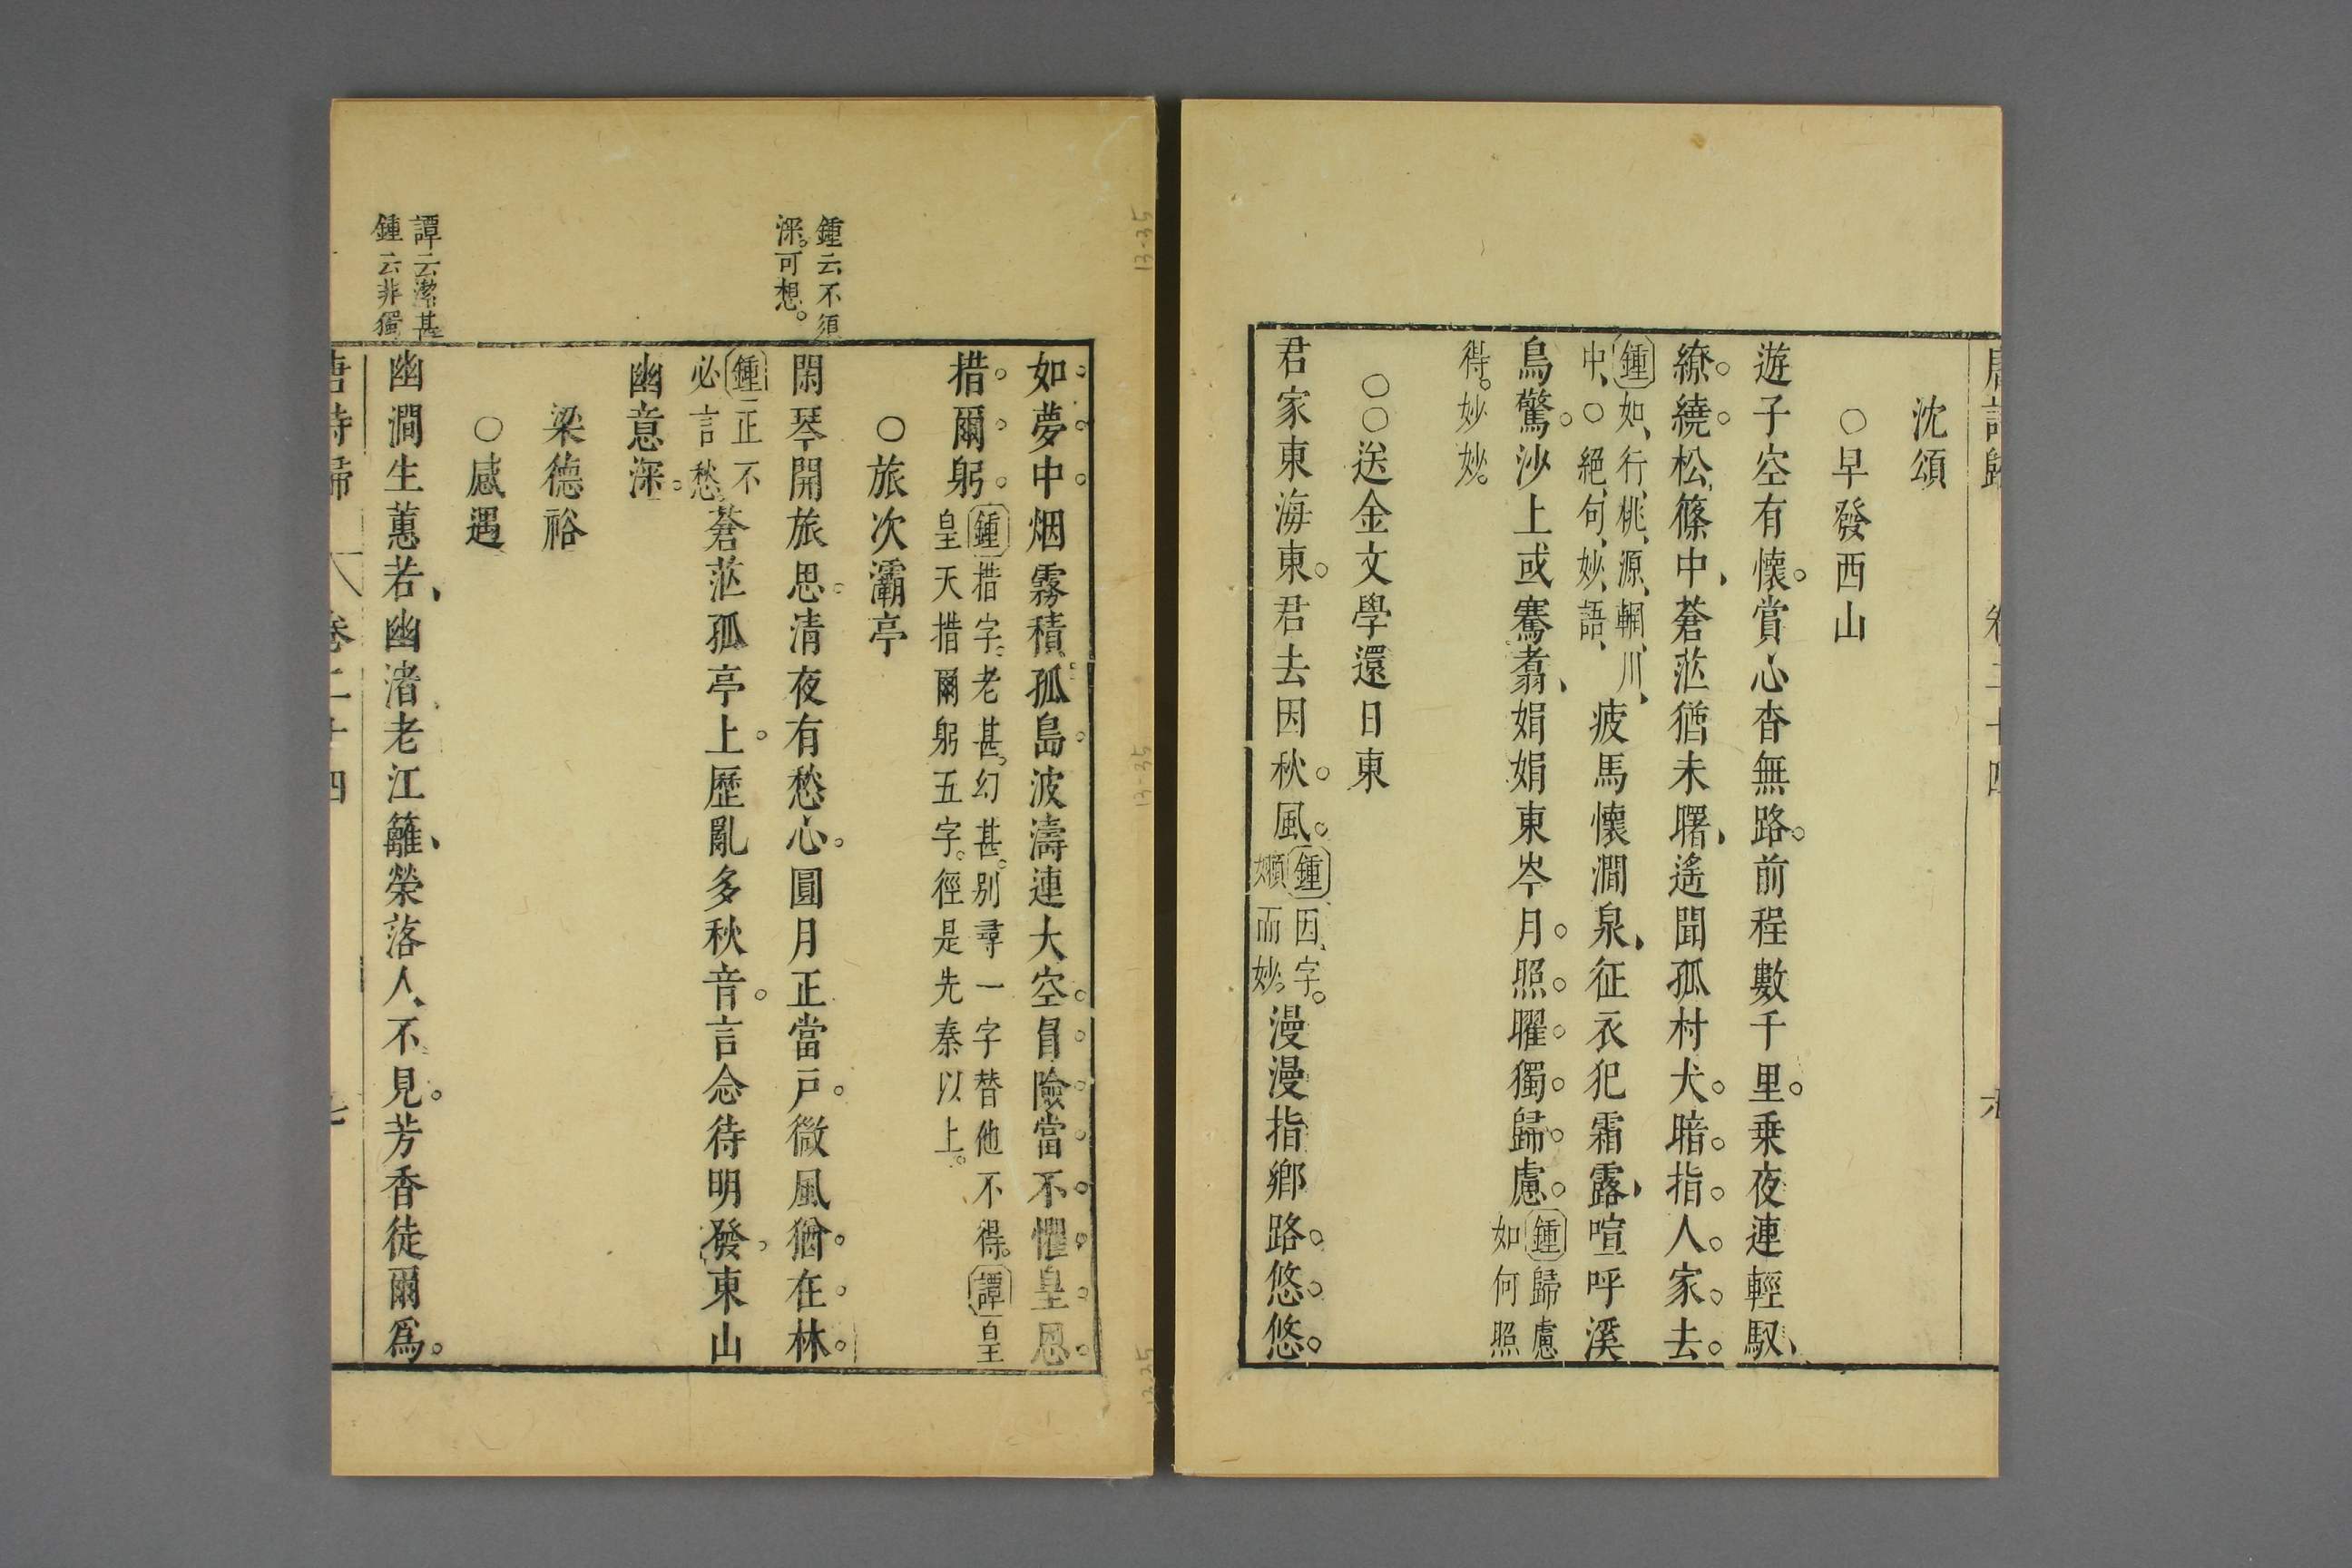 沈頌
○早發西山
遊子空有懷。賞心杳無路。前程數千里。乗夜連輕馭、
繚。繞。松篠中、蒼茫猶未曙、遙聞孤村犬。暗。指。人。家。去。
鍾如、行、桃、源、輞、川、
中、○絕、句、妙、語、
疲馬懷澗泉、征衣犯霜露、喧呼溪
鳥驚。沙上或騫翥、娟娟東岑月。照。曜。獨。歸。慮。
鍾歸慮
如何照
得。妙妙。
○○送金文學還日東
君家東海東。君去因秋。風。
鍾因、字。
嫩而妙。
漫漫指鄉路。悠。悠。
如。夢。中。烟霧積孤島。波濤連大空。冒。險。當。不。懼。皇。恩。
措。爾。躬。
鍾措字。老甚。幻甚。别尋一字替他不得。譚皇
皇天措爾躬五字。徑是先秦以上。
○旅次灞亭
閑琴開旅思。清夜有愁心。圓月正當戸。微風猶。在。林。
鍾正不
必言愁
蒼茫孤亭上。歷亂多秋音。言念待明發。東山
幽意深。
梁德裕
○感遇
幽澗生蕙若、幽渚老江蘺、榮落人、不見。芳香徒爾爲。
鍾云不須
深。可想。
譚云潔甚
鍾云非獨
唐詩歸
卷二十四